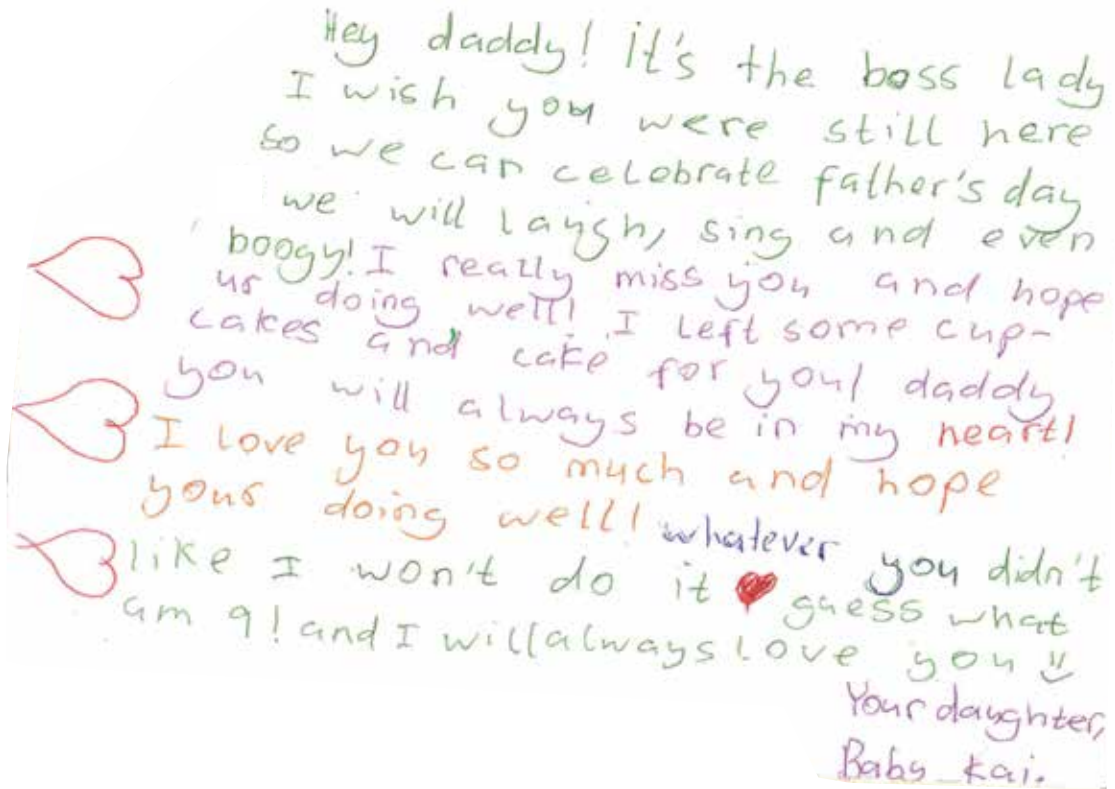 Hey daddy! it's the boss lady
I wish you were still here
so we can celebrate father's day
we will laugh, sing and even
boogy! I really miss you and hope
ur doing well! I left some cup-
cakes and cake for you! daddy
you will always be in my heart!
I love you so much and hope
your doing well! whatever you didn't
like I won't do it guess what
am 9! and I will always love you
Your daughter,
Baby Kai.